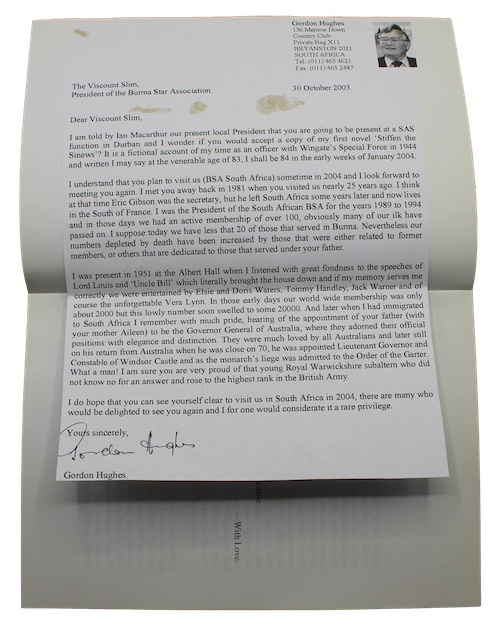 Gordon Hughes
136 Merrow Down
Country Club
Private Bag X11
BRYANSTON 2021
SOUTH AFRICA
Tel: (011) 465 4621
Fax: (011) 465 2487
The Viscount Slim,
President of the Burma Star Association.
30 October 2003.
Dear Viscount Slim,
I am told by Ian Macarthur our present local President that you are going to be present at a SAS
function in Durban and I wonder if you would accept a copy of my first novel 'Stiffen the
Sinews'? It is a fictional account of my time as an officer with Wingate's Special Force in 1944
and written I may say at the venerable age of 83, I shall be 84 in the early weeks of January 2004.
I understand that you plan to visit us (BSA South Africa) sometime in 2004 and I look forward to
meeting you again. I met you away back in 1981 when you visited us nearly 25 years ago. I think
at that time Eric Gibson was the secretary, but he left South Africa some years later and now lives
in the South of France. I was the President of the South African BSA for the years 1989 to 1994
and in those days we had an active membership of over 100, obviously many of our ilk have
passed on. I suppose today we have less that 20 of those that served in Burma. Nevertheless our
numbers depleted by death have been increased by those that were either related to former
members, or others that are dedicated to those that served under your father.
I was present in 1951 at the Albert Hall when I listened with great fondness to the speeches of
Lord Louis and 'Uncle Bill' which literally brought the house down and if my memory serves me
correctly we were entertained by Elsie and Doris Waters, Tommy Handley, Jack Warner and of
course the unforgettable Vera Lynn. In those early days our world wide membership was only
about 2000 but this lowly number soon swelled to some 20000. And later when I had immigrated
to South Africa I remember with much pride, hearing of the appointment of your father (with
your mother Aileen) to be the Governor General of Australia, where they adorned their official
positions with elegance and distinction. They were much loved by all Australians and later still
on his return from Australia when he was close on 70, he was appointed Lieutenant Governor and
Constable of Windsor Castle and as the monarch's liege was admitted to the Order of the Garter.
What a man! I am sure you are very proud of that young Royal Warwickshire subaltern who did
not know no for an answer and rose to the highest rank in the British Army.
I do hope that you can see yourself clear to visit us in South Africa in 2004, there are many who
would be delighted to see you again and I for one would consider it a rare privilege.
Yours sincerely,
Gordon Hughes
Gordon Hughes.
— With Love.